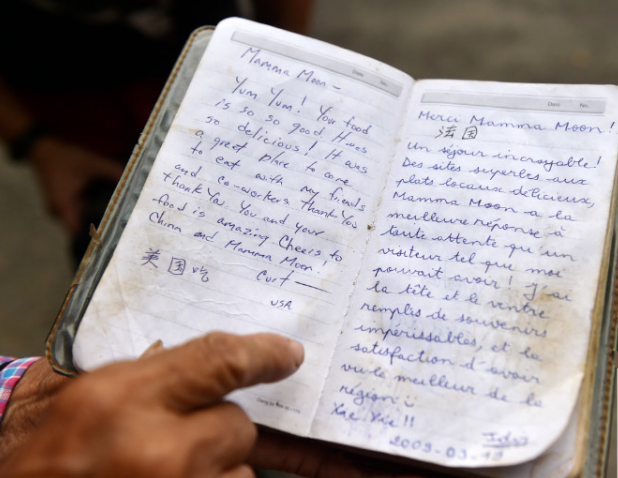 Date No.
Mamma Moon –
Yum Yum! You food
is so so good It was
so delicious! It was
a great place to come
to eat with my friends
and co-workers thank You
thank You. You and your
food is amazing Cheers to
China and Mamma Moon!
Curt —
美国
USA
Date No.
Merci Mamma Moon!
法国
Un séjour incroyable!
Des sites superbes aux
plats locaux délicieux,
Mamma Moon a la
meilleure réponse à
toute attente qu'un
visiteur tel que moi
pourrait avoir! J'ai
la tête et le ventre
remplis de souvenirs
impérissables, et la
satisfaction d'avoir
vu le meilleur de la
région
Xie Xie!!